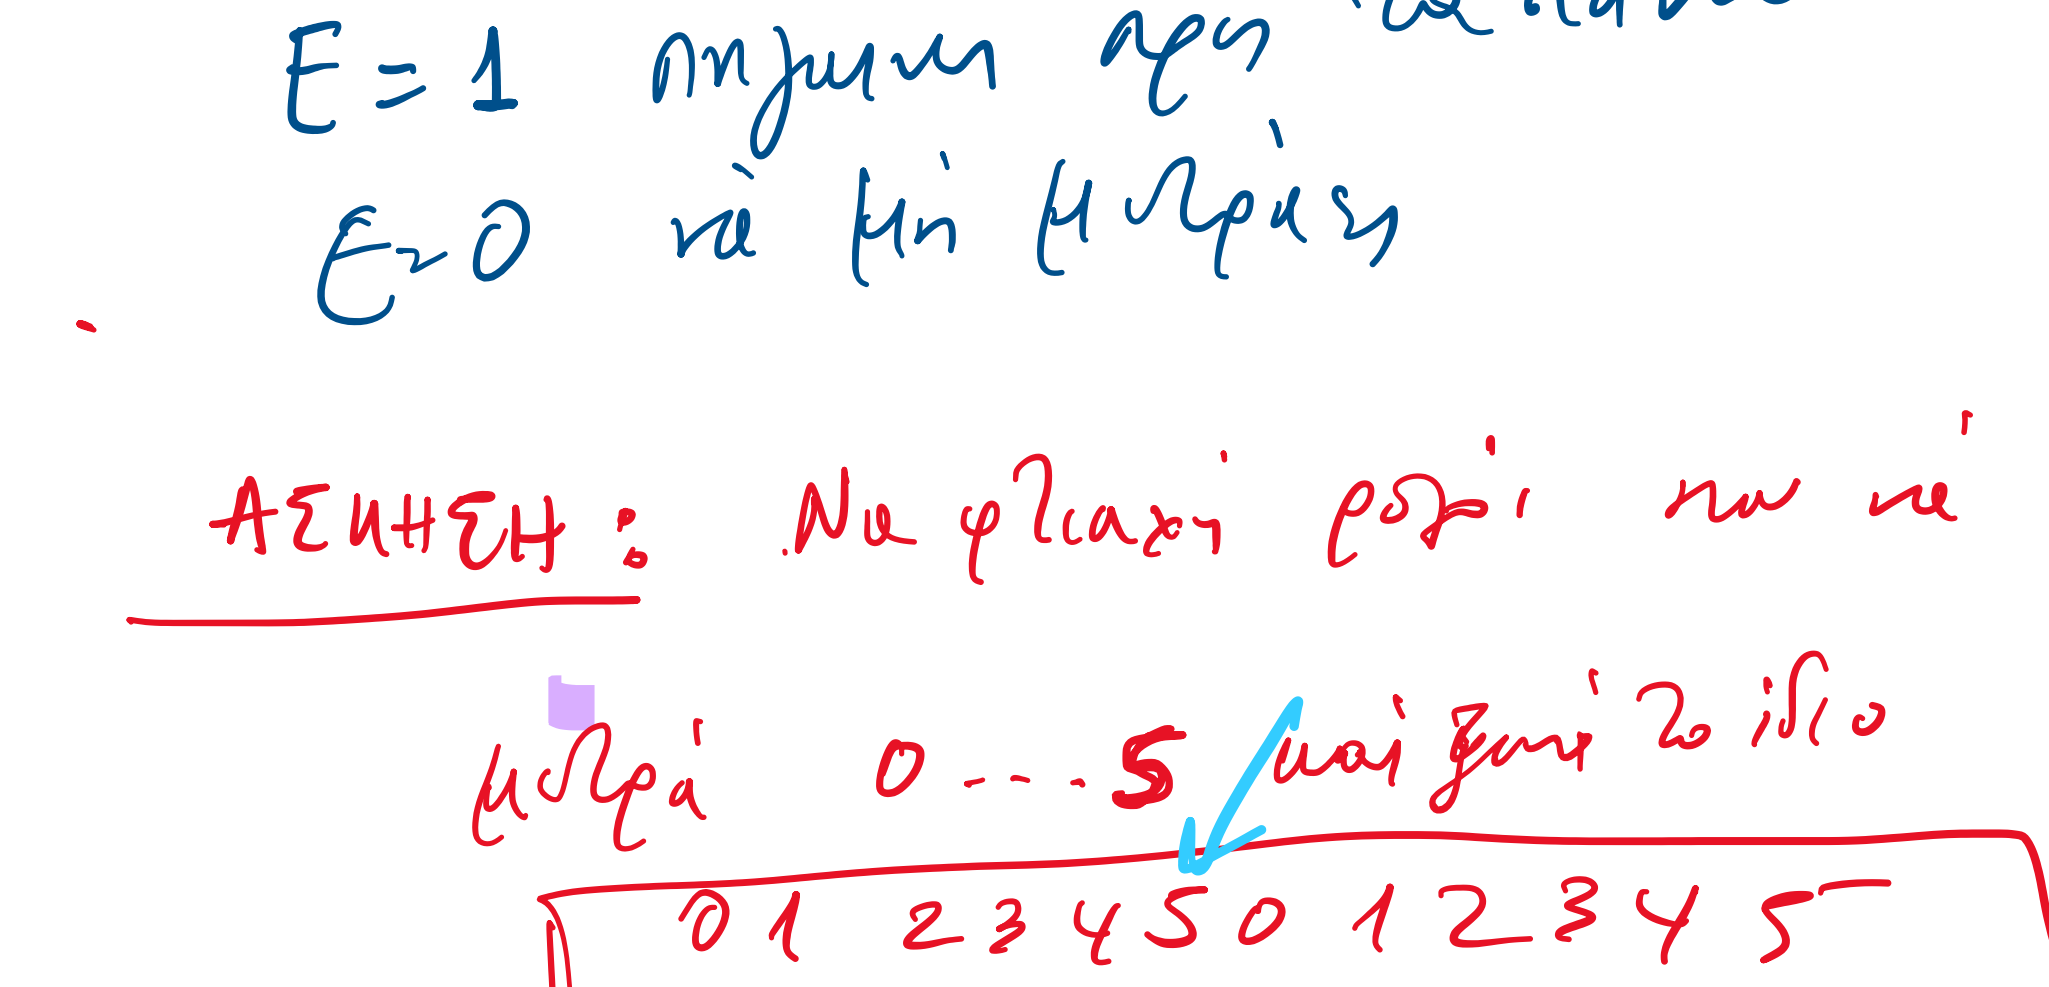 E = 1 πηγαινει αρχη
E = 0 νά μή μετράει
ΑΣΚΗΣΗ: Να φτιαχτεί ρολόι που νά
μετρά 0 ... 5 καί ξανά το ίδιο
0 1 2 3 4 5 0 1 2 3 4 5